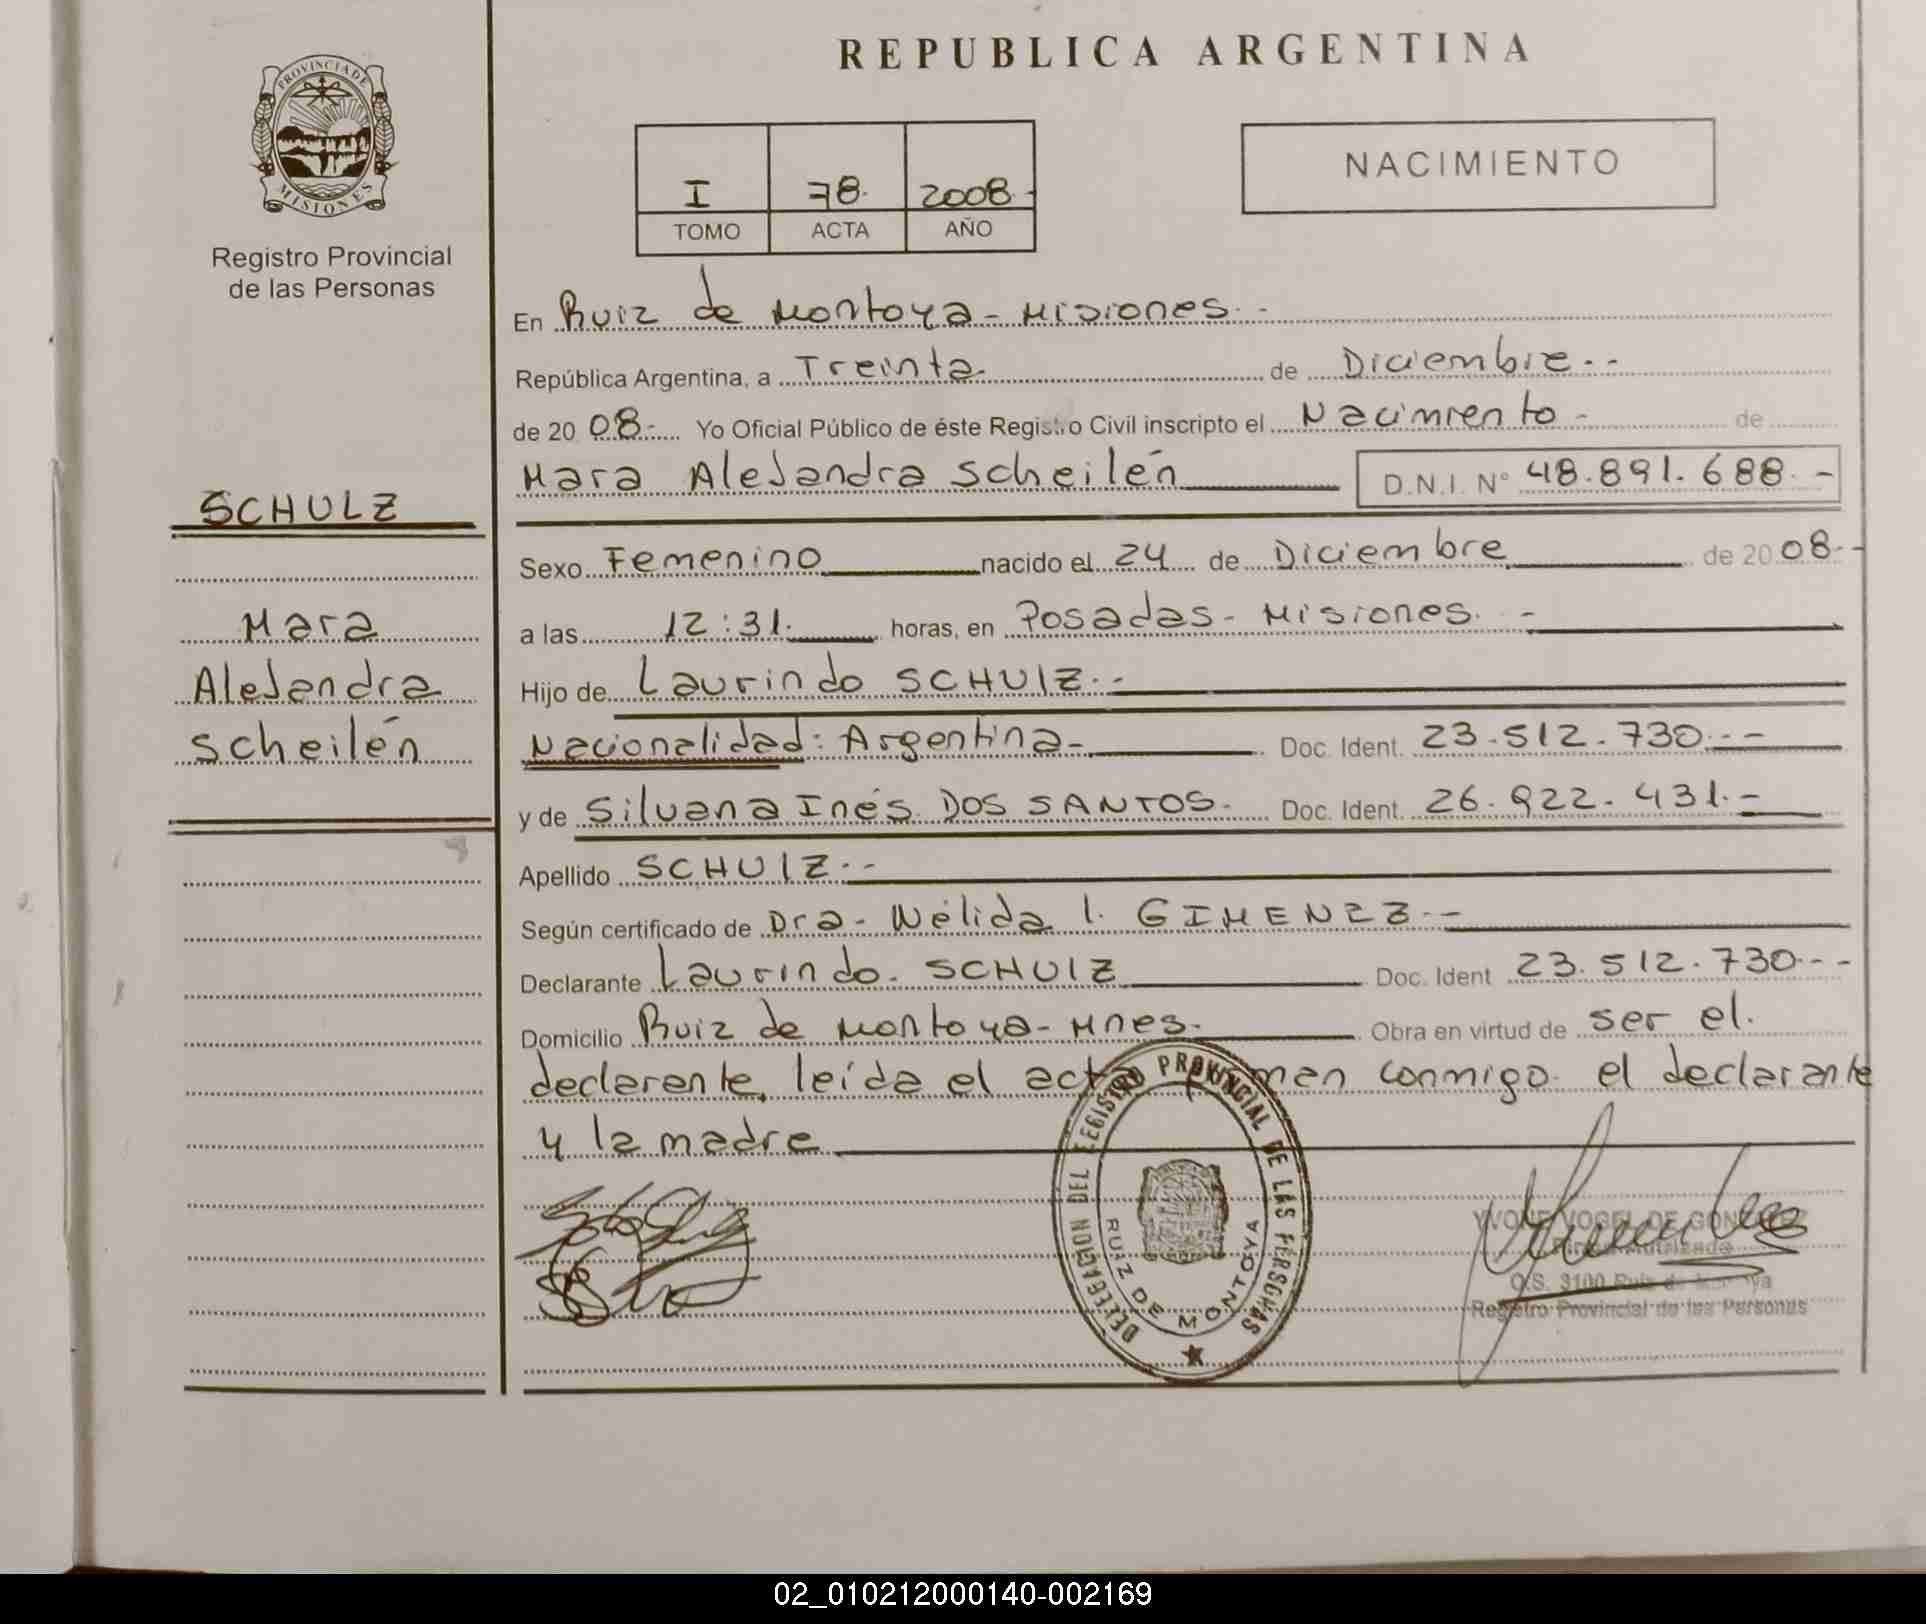 REPUBLICA ARGENTINA
PROVINCIA DE
MISIONES
Registro Provincial
de las Personas
I 78. 2008.-
TOMO ACTA AÑO
NACIMIENTO
En Ruiz de Montoya - Misiones. -
República Argentina, a Treinta de Diciembre. -
de 20 08.- Yo Oficial Público de éste Registro Civil inscripto el Nacimiento - de
Mara Alejandra Scheilén D.N.I. N° 48.891.688. -
SCHULZ
Mara
Alejandra
Scheilén
Sexo Femenino nacido el 24 de Diciembre de 20 08.-
a las 12:31. horas, en Posadas - Misiones. -
Hijo de Laurindo SCHULZ. -
Nacionalidad: Argentina - Doc. Ident. 23.512.730. -
y de Silvana Inés DOS SANTOS. Doc. Ident. 26.922.431. -
Apellido SCHULZ. -
Según certificado de Dra. Nélida I. GIMENEZ. -
Declarante Laurindo. SCHULZ Doc. Ident 23.512.730. -
Domicilio Ruiz de Montoya - Mnes. Obra en virtud de ser el.
declarante, leída el acta firman conmigo el declarante
y la madre
DELEGACION DEL REGISTRO PROVINCIAL DE LAS PERSONAS
RUIZ DE MONTOYA
YVONE VOGEL DE GONZALEZ
Firma Autorizada
O.S. 3100 Ruiz de Montoya
Registro Provincial de las Personas
02_010212000140-002169